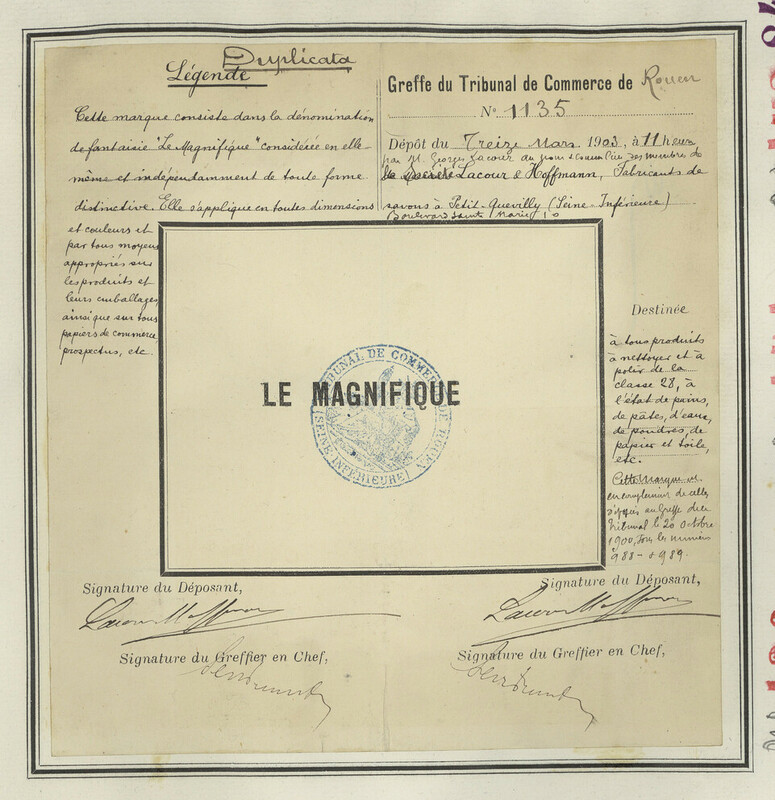 Duplicata
Légende
Cette marque consiste dans la dénomination
de fantaisie "Le Magnifique" considérée en elle-
même et indépendamment de toute forme
distinctive. Elle s'applique en toutes dimensions
et couleurs et
par tous moyens
appropriés sur
les produits et
leurs emballages
ainsi que sur tous
papiers de commerce,
prospectus, etc
Greffe du Tribunal de Commerce de Rouen
N° 1135
Dépôt du Treize Mars 1903, à 11 heures
par M. Georges Lacour au nom et comme l'un des membres de
la société Lacour & Hoffmann, Fabricants de
savons à Petit-Quevilly (Seine-Inférieure)
Boulevard Saint Marie, 10
LE MAGNIFIQUE
TRIBUNAL DE COMMERCE DE ROUEN
(SEINE-INFÉRIEURE)
Destinée
à tous produits
à nettoyer et à
polir de la
classe 28, à
l'état de pains,
de pâtes, d'eaux,
de poudres, de
papier et toile,
etc.
Cette Marque
en complément de celles
déposées au Greffe de ce
Tribunal le 20 octobre
1900, sous les numéros
988 - & 989.
Signature du Déposant,
Lacour Hoffmann
Signature du Greffier en Chef,
Signature du Déposant,
Lacour Hoffmann
Signature du Greffier en Chef,